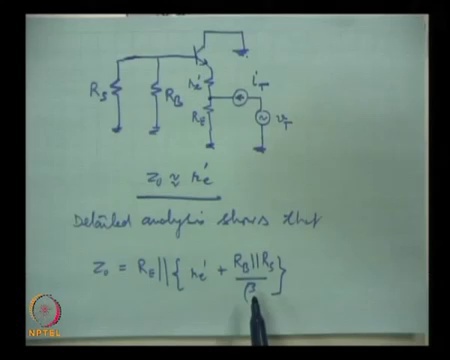 R_S
R_B
r_e'
R_E
i_T
v_T
Z_0 ≈ r_e'
Detailed analysis shows that
Z_0 = R_E || { r_e' + (R_B || R_S) / β }
NPTEL